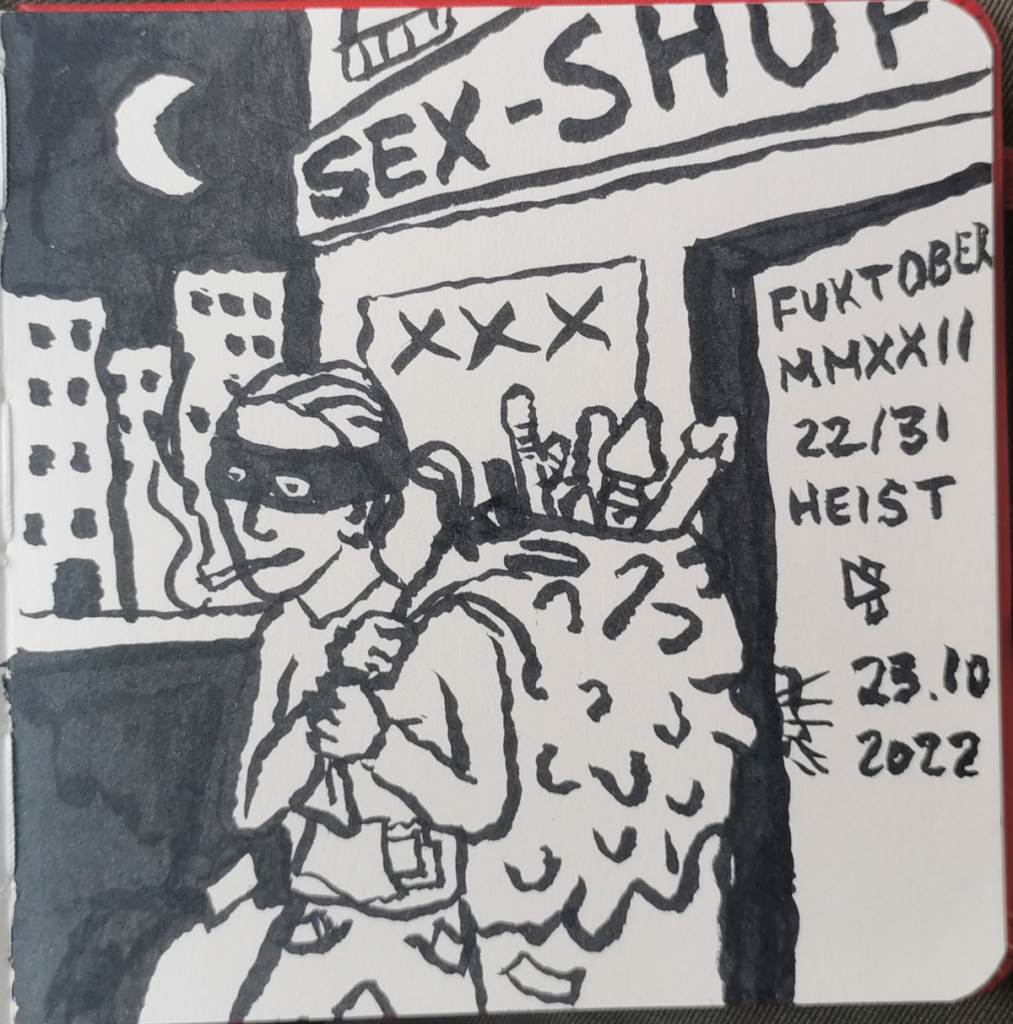 SEX-SHOP
XXX
FUKTOBER
MMXXII
22/31
HEIST
23.10
2022